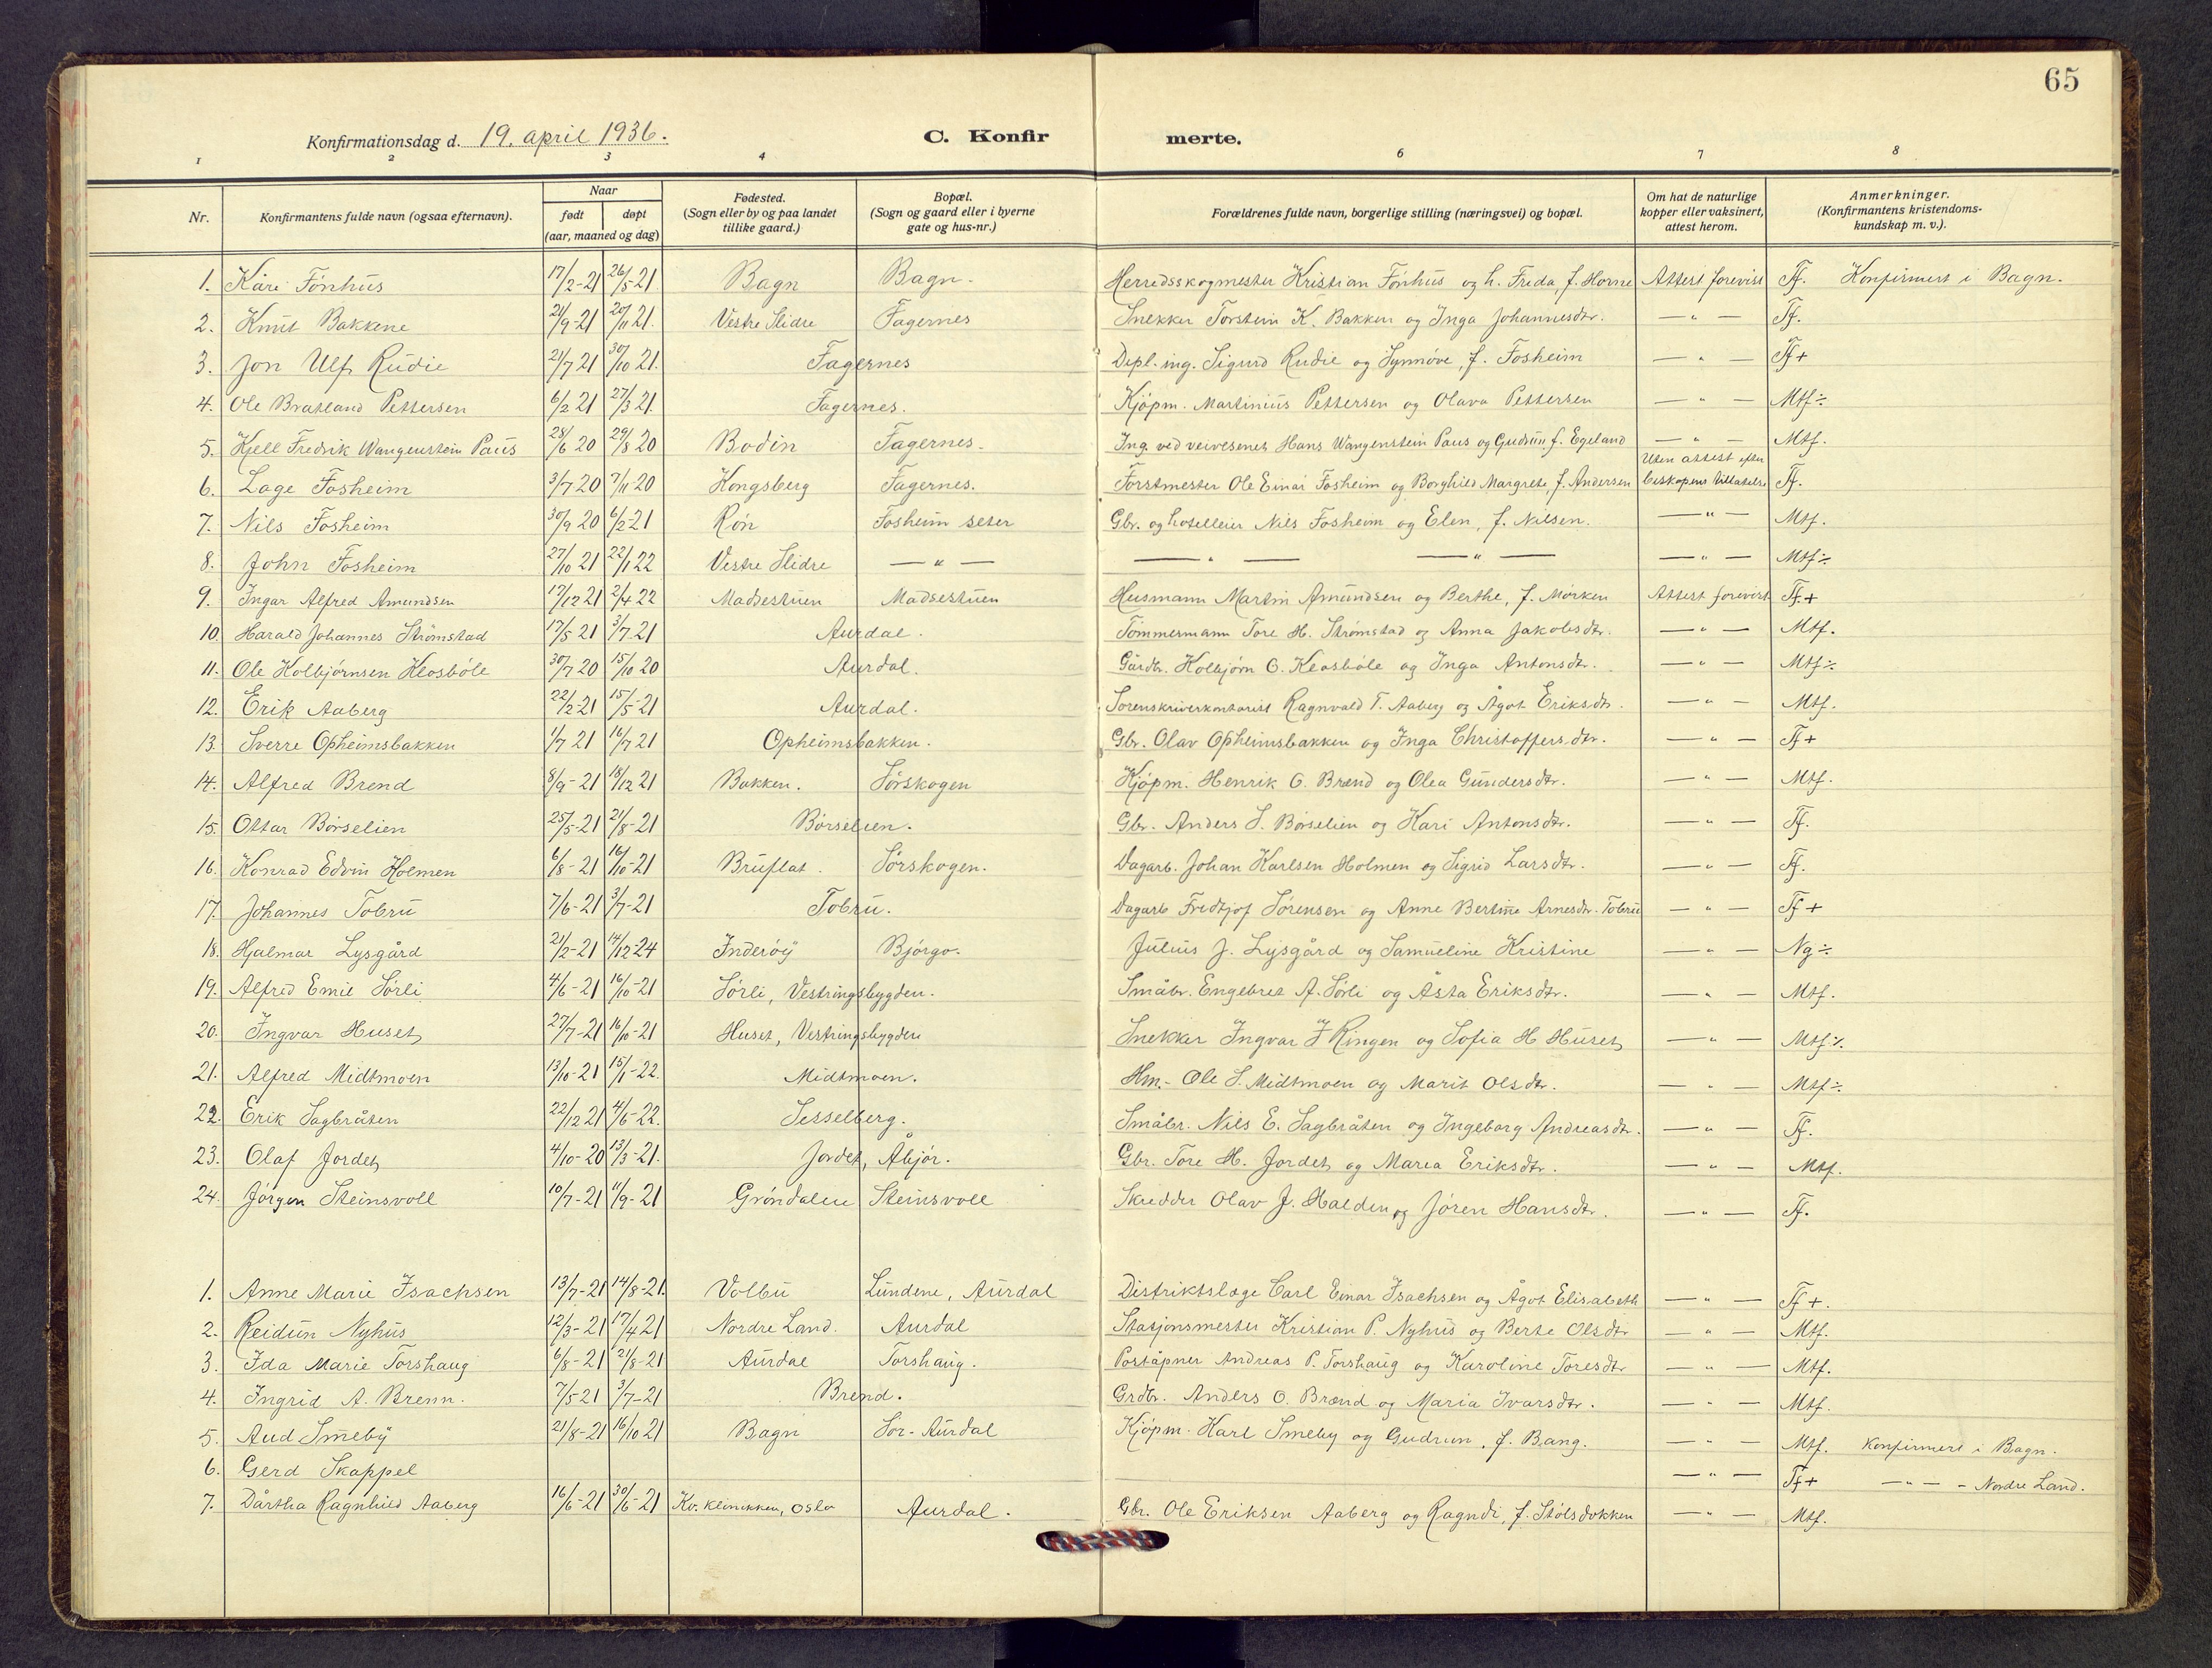 65
Konfirmationsdag d. 19. april 1936. C. Konfirmerte.
1 2 3 4 6 7 8
Nr. Konfirmantens fulde navn (ogsaa efternavn). Naar født døpt (aar, maaned og dag) Fødested. (Sogn eller by og paa landet tillike gaard.) Bopæl. (Sogn og gaard eller i byerne gate og hus-nr.) Forældrenes fulde navn, borgerlige stilling (næringsvei) og bopæl. Om hat de naturlige kopper eller vaksinert, attest herom. Anmerkninger. (Konfirmantens kristendoms-kundskap m. v.).
1. Kåre Fönhus 17/2-21 26/5-21. Bagn Bagn. Herredsskogmester Kristian Fönhus og h. Freda, f. Horne Attest forevist Tf. Konfirmert i Bagn.
2. Knut Bakkene 21/9-21 20/11 21. Vestre Slidre Fagernes Snekker Torstein K. Bakken og Inga Johannesdtr. — " — Tf.
3. Jon Ulf Rudie 21/7 21 30/10 21. Fagernes Dipl.-ing. Sigurd Rudie og Synnöve, f. Fosheim — " — Tf+
4. Ole Bratland Pettersen 6/2 21 27/3 21. Fagernes. Kjöpm. Martinius Pettersen og Olava Pettersen — " — Mtf÷
5. Kjell Fredrik Wangenstein Paus 28/6 20 29/8 20 Bodin Fagernes. Ing. ved veivesenet Hans Wangenstein Paus og Gudrun f. Egeland — " — Mtf.
6. Lage Fosheim 3/7 20 7/11-20 Kongsberg Fagernes. Forstmester Ole Einar Fosheim og Borghild Margrete, f. Andersen Uten attest efter biskopens tillatelse Tf.
7. Nils Fosheim 30/9 20 6/2-21 Rön Fosheim seter Gbr. og hotelleier Nils Fosheim og Elen, f. Nilsen. — " — Mtf.
8. John Fosheim 27/10 21 22/1 22 Vestre Slidre — " — — " — — " — — " — Mtf÷
9. Ingar Alfred Amundsen 17/12 21 2/4 22 Madsestuen Madsestuen Husmann Martin Amundsen og Berthe, f. Mörken Attest forevist Tf.+
10. Harald Johannes Strömstad 17/5 21 3/7-21 Aurdal. Tömmermann Tore H. Strömstad og Anna Jakobsdtr. — " — Mtf.
11. Ole Kolbjörnsen Keosböle 30/7 20 15/10 20 Aurdal. Gårdbr. Kolbjörn O. Keosböle og Inga Antonsdtr. — " — Mtf÷
12. Erik Aaberg 22/2-21 15/5-21 Aurdal. Sorenskriverkontorist Ragnvald T. Aaberg og Ågot Eriksdtr. — " — Mtf.
13. Sverre Opheimsbakken 1/7 21 16/7 21 Opheimsbakken. Gbr. Olav Opheimsbakken og Inga Christoffersdtr. — " — Tf+
14. Alfred Brend 8/9-21 18/12 21 Bakken. Sörskogen Kjöpm. Henrik O. Brend og Olea Gundersdtr. — " — Mtf.
15. Ottar Börselien 25/5-21 21/8-21 Börselien. Gbr. Anders S. Börselien og Kari Antonsdtr. — " — Tf.
16. Konrad Edvin Holmen 6/8-21 16/10-21 Bruflat. Sörskogen. Dagarb. Johan Karlsen Holmen og Sigrid Larsdtr. — " — Tf.
17. Johannes Tobru 7/6-21 3/7-21 Tobru. Dagarb Fredtjof Sörensen og Anne Bertine Arnesdtr. Tobru — " — Tf+
18. Hjalmar Lysgård 21/2-21 14/12-24 Inderöy Björgo. Julius J. Lysgård og Samueline Kristine — " — Ng÷
19. Alfred Emil Sörli 4/6-21 16/10-21 Sörli, Vestringsbygden. Småbr. Engebret A. Sörli og Åsta Eriksdtr. — " — Mtf.
20. Ingvar Huset 27/7-21 16/10-21 Huset, Vestringsbygden Snekker Ingvar I Ringen og Sofia H Huset — " — Mtf÷
21. Alfred Midtmoen 13/10-21 15/1-22. Midtmoen. Hm.- Ole S. Midtmoen og Marit Olsdtr. — " — Mtf÷
22. Erik Sagbråten 22/12 21 4/6-22. Sesselberg. Småbr. Nils E. Sagbråten og Ingeborg Andreasdtr. — " — Tf.
23. Olaf Jordet 4/10-20 13/3-21. Jordet, Åbjör. Gbr. Tore H. Jordet og Maria Eriksdtr. — " — Mtf.
24. Jörgen Steinsvoll 10/7-21 11/9-21 Gröndalen Steinsvoll Skredder Olav J. Halden og Jören Hansdtr. — " — Tf.
1. Anne Marie Isachsen 13/7-21 14/8-21. Volbu Lundene, Aurdal Distriktslæge Carl Einar Isachsen og Ågot Elisabeth — " — Tf+.
2. Reidun Nyhus 12/3-21 17/4 21 Nordre Land. Aurdal Stasjonsmester Kristian P. Nyhus og Berte Olsdtr — " — Mtf.
3. Ida Marie Torshaug 6/8-21 21/8-21 Aurdal Torshaug. Poståpner Andreas P. Torshaug og Karoline Toresdtr — " — Mtf.
4. Ingrid A. Brenn. 7/5 21 3/7-21 Brend. Grdbr. Anders O. Brænd og Maria Ivarsdtr. — " — Mtf.
5. Aud Smeby 21/8-21 16/10 21 Bagn Sör-Aurdal Kjöpm. Karl Smeby og Gudrun, f. Bang. — " — Mtf. Konfirmert i Bagn.
6. Gerd Skappel — " — Tf+ — " — - Nordre Land.
7. Dårtha Ragnhild Aaberg 16/6-21 30/6-21 Kv. klinikken, Oslo Aurdal. Gbr. Ole Eriksen Aaberg og Ragndi, f. Stölsdokken — " — Mtf.